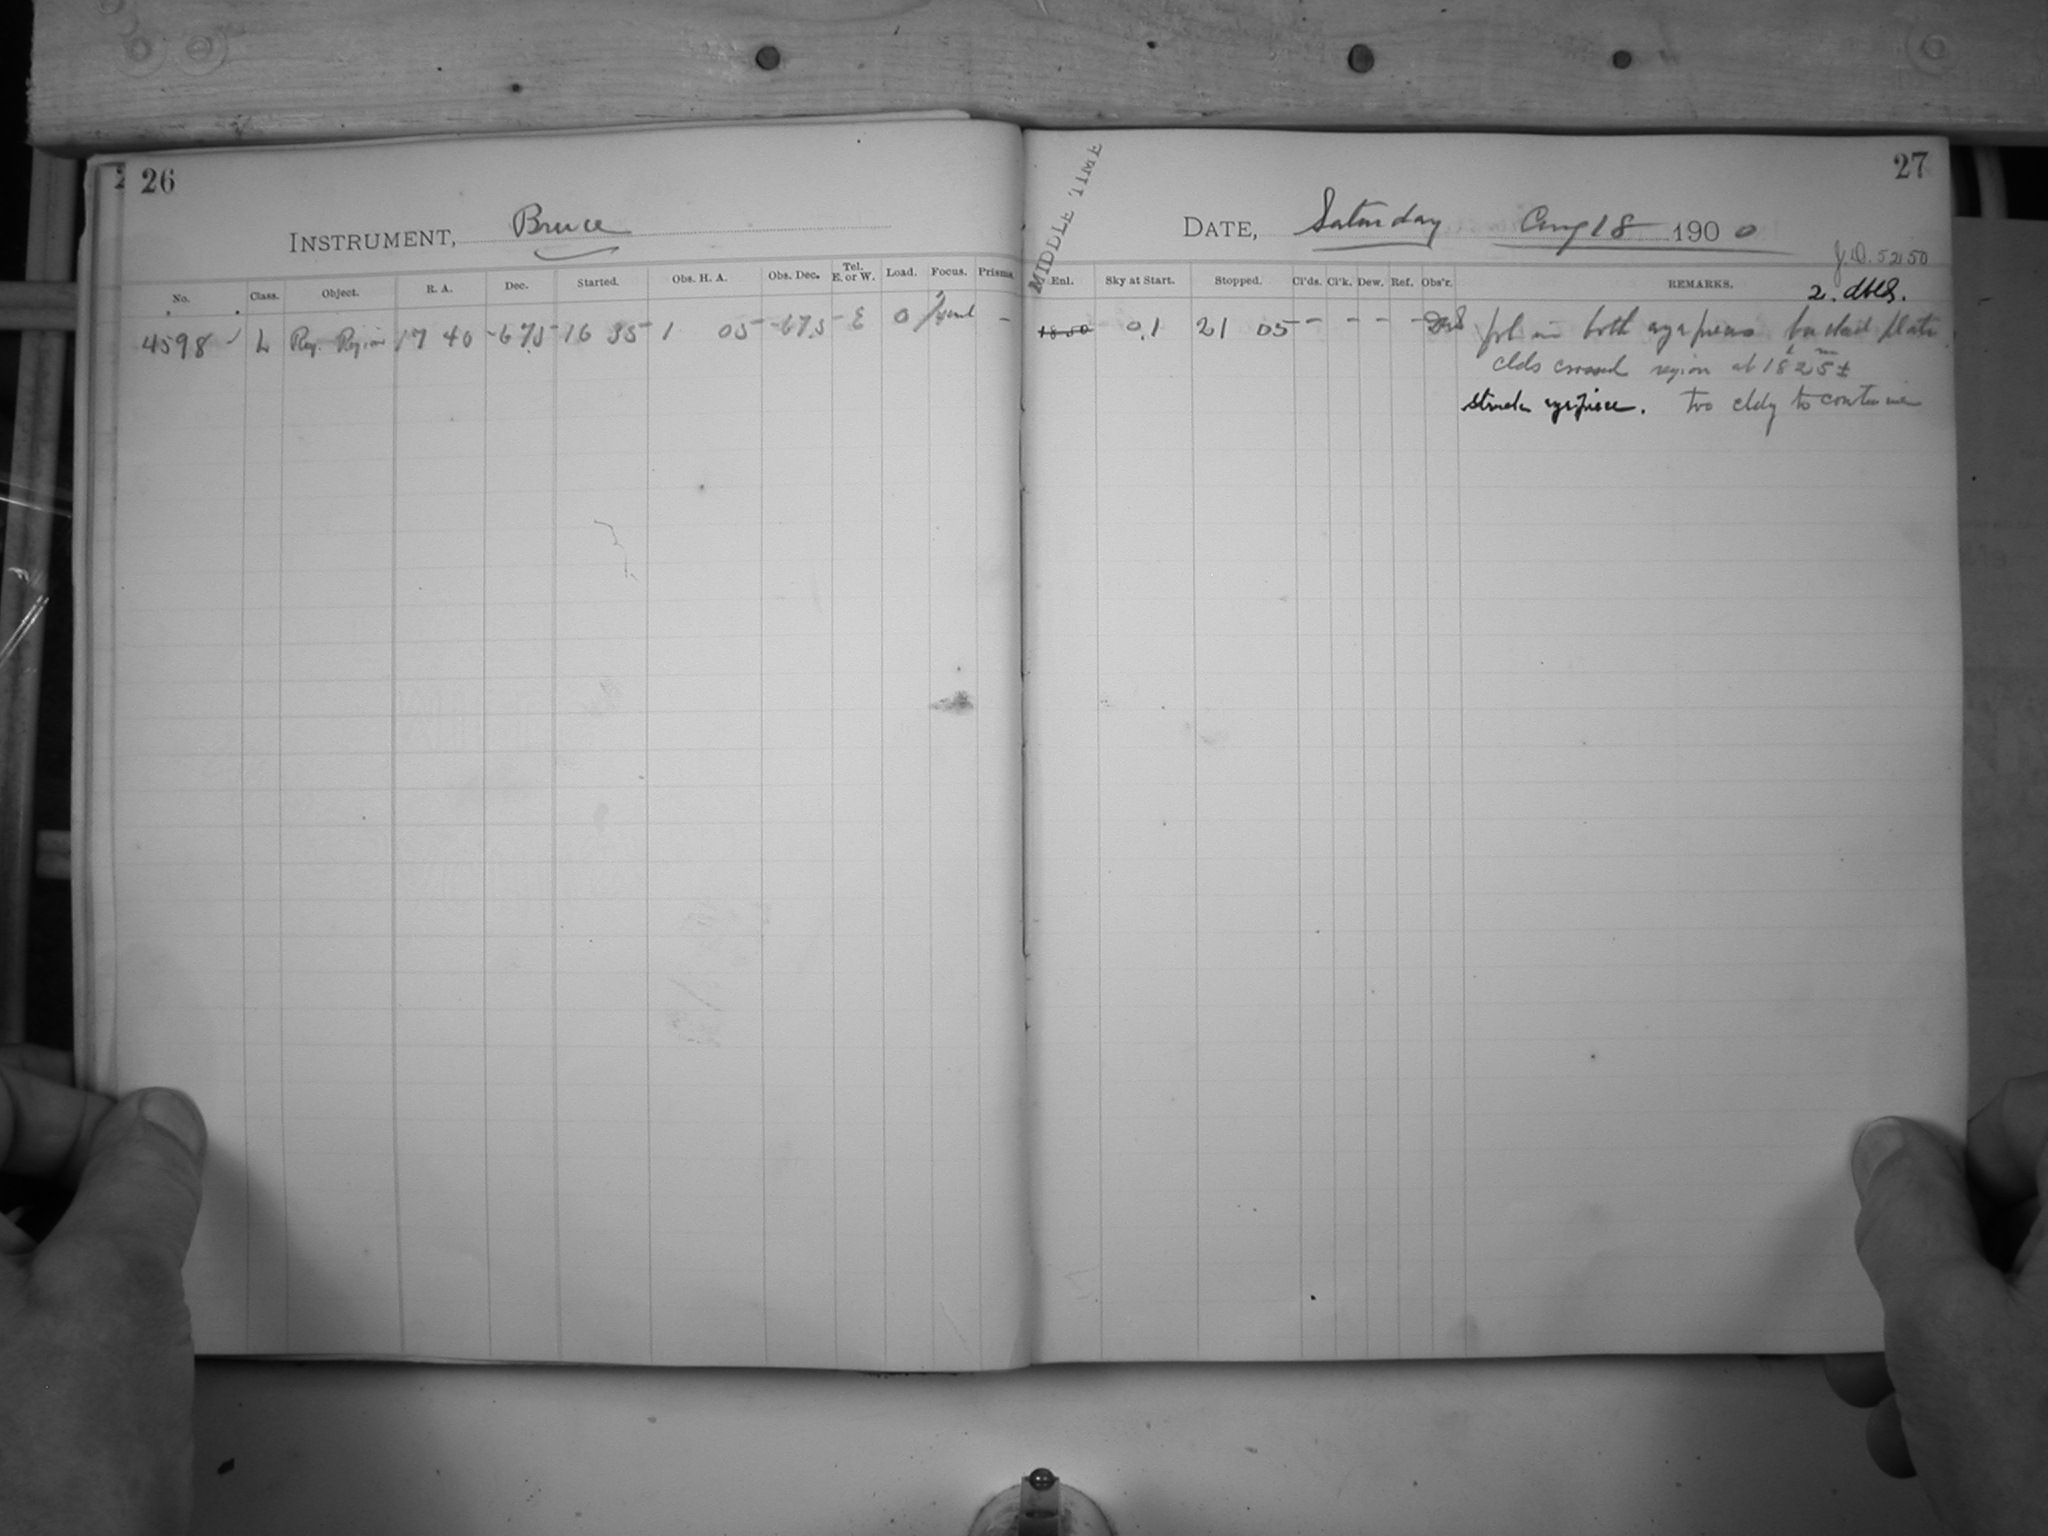 26
INSTRUMENT, Bruce
No. Class. Object. R. A. Dec. Started. Obs. H. A. Obs. Dec. Tel. E. or W. Load. Focus. Prisms.
4598 L Reg. Region 17 40 -67.5 16 35 1 05 -67.5 E 0 -
MIDDLE TIME
27
DATE, Saturday Aug 18 1900
J.D. 52150
Enl. Sky at Start. Stopped. Cl'ds. Cl'k. Dew. Ref. Obs'r. REMARKS.
2. dbls.
18 50 0.1 21 05 - - - - in both eyepieces plate
clds crossed region at 18h 25m ±
struck eyepiece. too cldy to continue